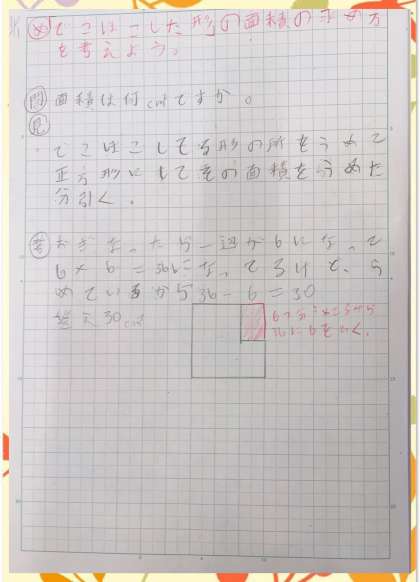 めでこぼこした形の面積の求め方
を考えよう。
問 面積は何cm²ですか。
見
でこぼこしてる形の所をうめて
正方形にして全の面積をうめた
分引く。
考 おぎなったら一辺が6になって
6×6=36になってるけど、う
めているから36-6=30
答え30cm²
6つ分うめたから
36に6をひく。